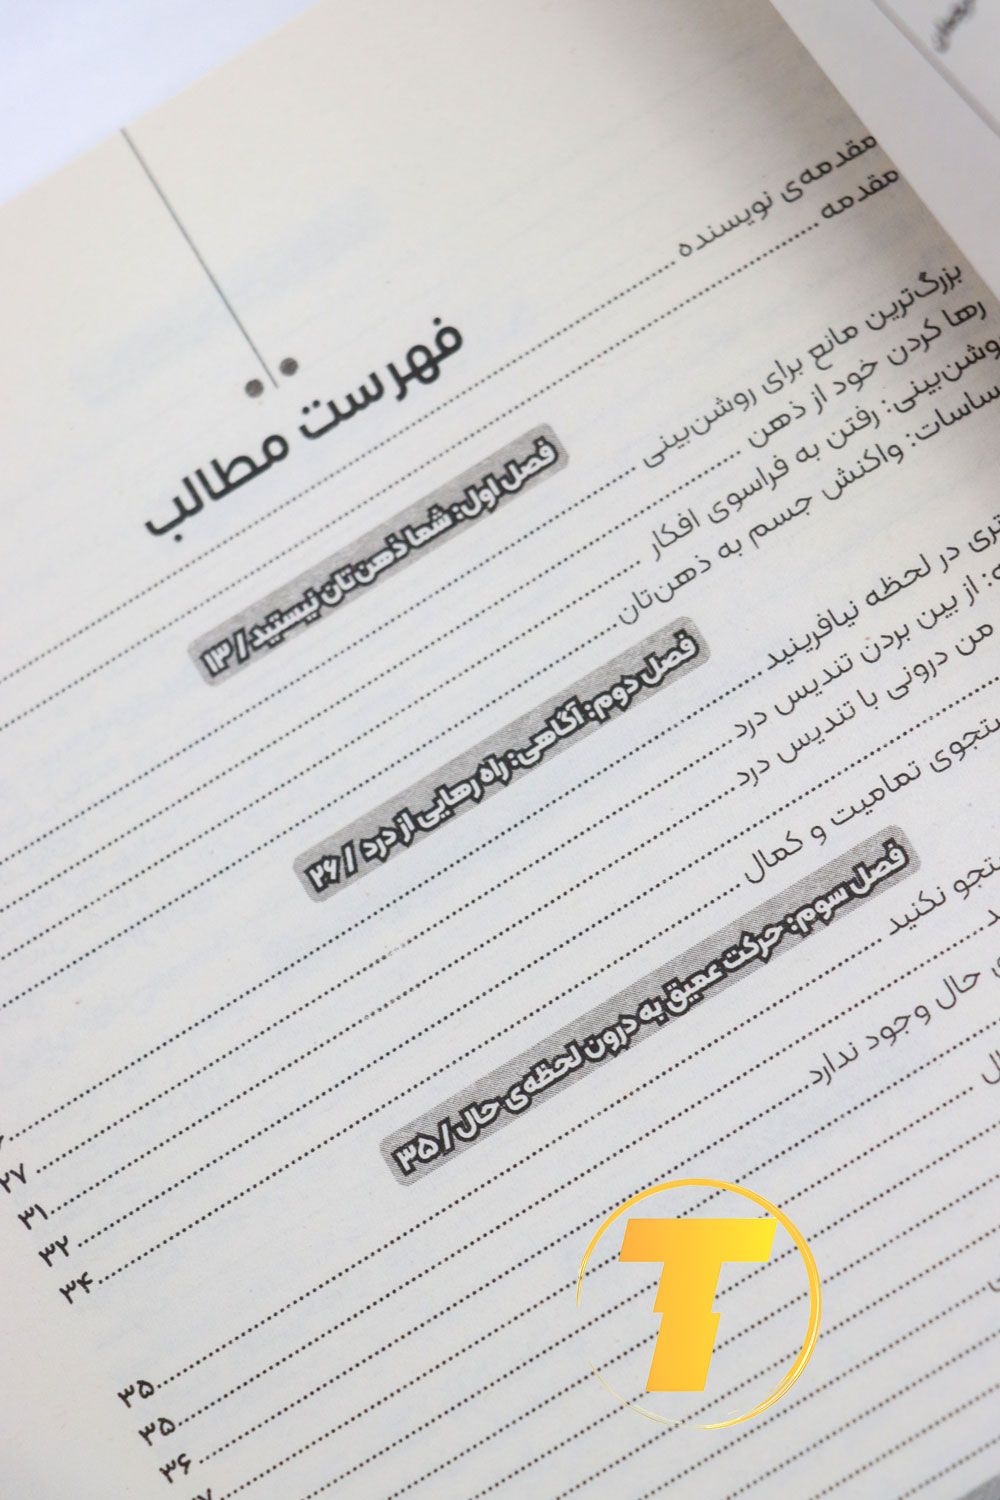 فهرست مطالب
مقدمه‌ی نویسنده
مقدمه
فصل اول: شما ذهن‌تان نیستید / ۱۳
بزرگ‌ترین مانع برای روشن‌بینی
رها کردن خود از ذهن
وشن‌بینی: رفتن به فراسوی افکار
ساسات: واکنش جسم به ذهن‌تان
فصل دوم: آگاهی: راه رهایی از درد / ۲۶
تری در لحظه نیافرینید
ه: از بین بردن تندیس درد ۲۷
من درونی با تندیس درد ۳۱
۳۲
ستجوی تمامیت و کمال ۳۴
فصل سوم: حرکت عمیق به درون لحظه‌ی حال / ۳۵
تجو نکنید ۳۵
د ۳۵
ی حال وجود ندارد ۳۶
ال
T